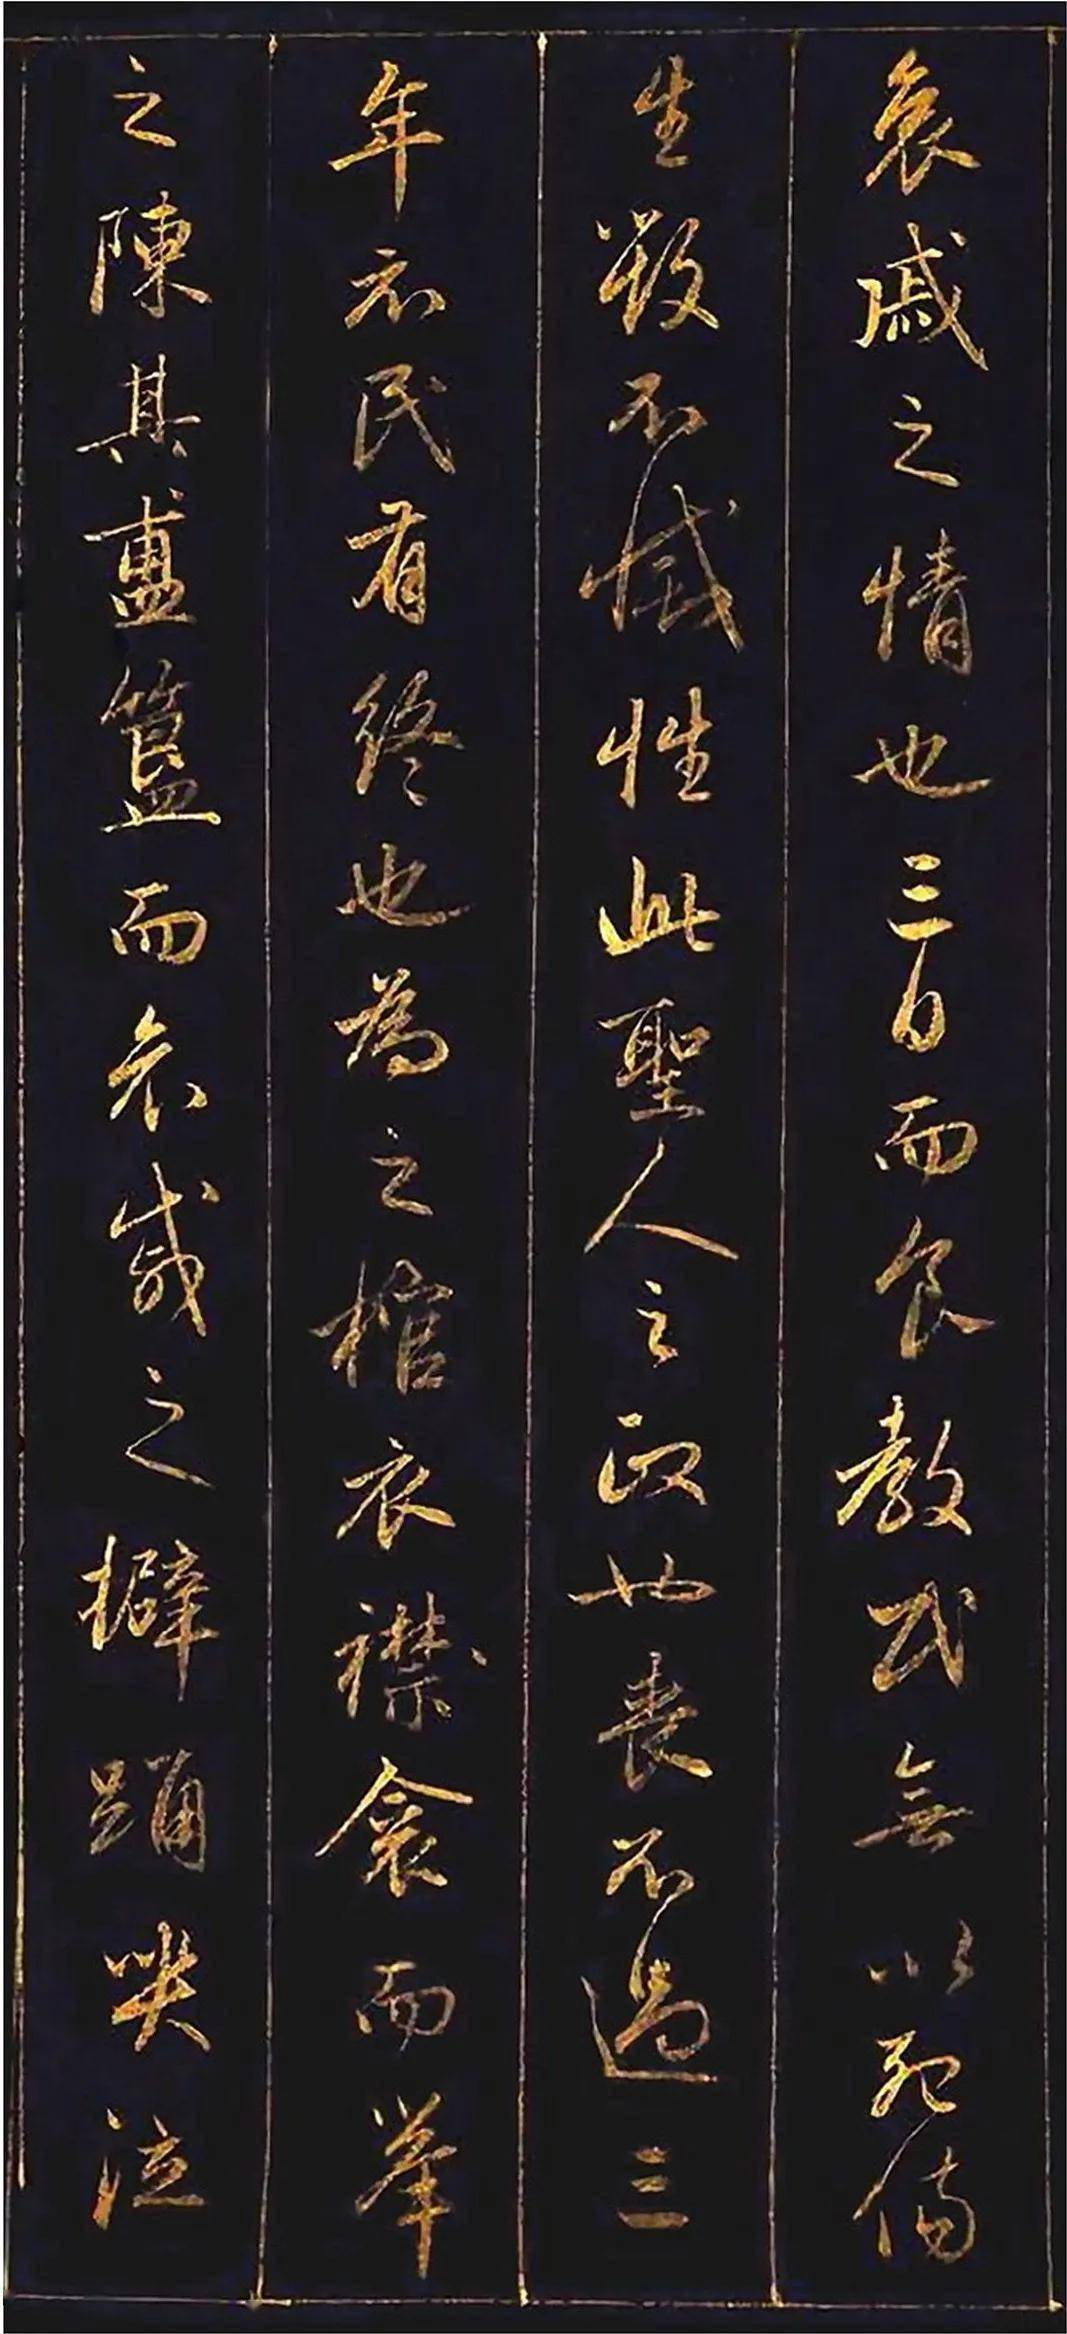 哀戚之情也三日而食教民無以死傷
生毀不滅性此聖人之政也喪不過三
年示民有終也為之棺衣襟衾而舉
之陳其簠簋而哀戚之擗踊哭泣